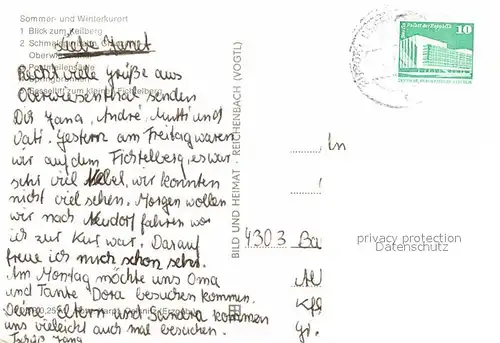 Sommer- und Winterkurort
1 Blick zum Keilberg
2 Schmal
Oberw
Postmeilensäule
Sessellift zum kleinen Fichtelberg
Liebe Janet
Recht viele Grüße aus
Oberwiesenthal senden
Dir Jana, Andre, Mutti und
Vati. Gestern am Freitag waren
wir auf dem Fichtelberg, es war
sehr viel Nebel, wir konnten
nicht viel sehen. Morgen wollen
wir nach Neudorf fahren wo
ich zur Kur war. Darauf
freue ich mich schon sehr.
Am Montag möchte uns Oma
und Tante Dora besuchen kommen.
Deine Eltern und Sandra kommen
uns vieleicht auch mal besuchen.
Tschüß Jana
BILD UND HEIMAT · REICHENBACH (VOGTL)
10
4303 Ba
privacy protection
Datenschutz